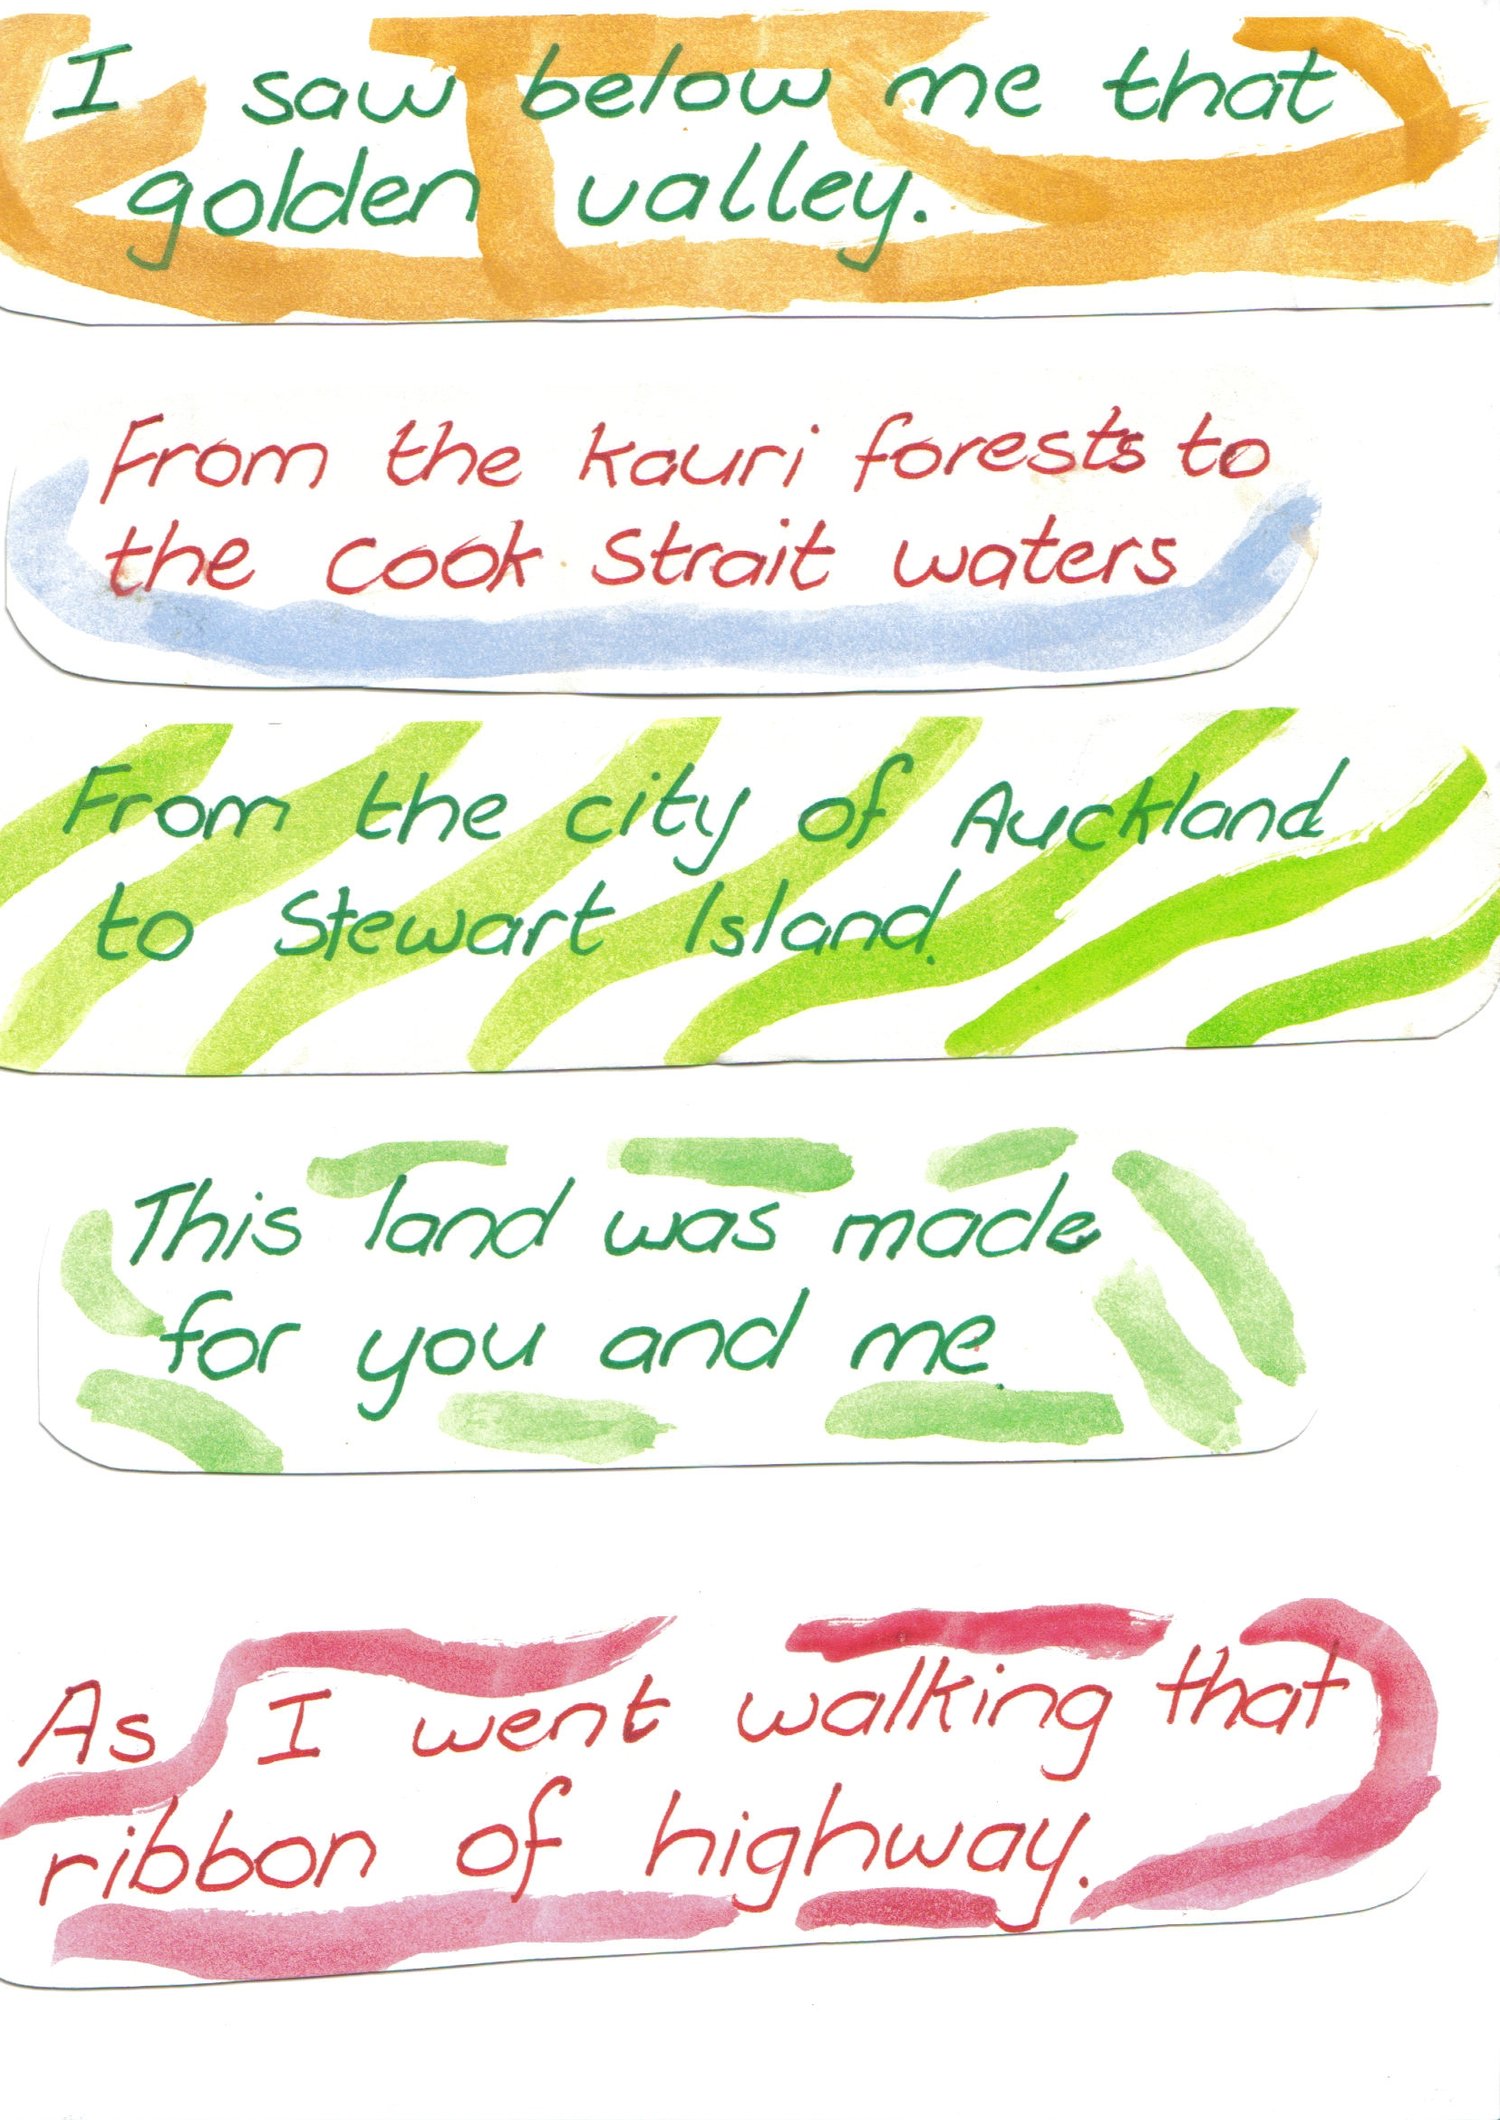 I saw below me that
golden valley.
From the kauri forests to
the cook Strait waters
From the city of Auckland
to Stewart Island.
This land was made
for you and me.
As I went walking that
ribbon of highway.